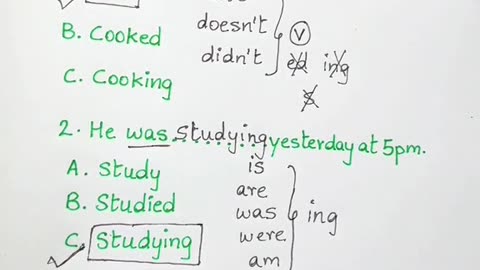 doesn't
B. Cooked
didn't
V
ed ing
C. Cooking
S
2. He was studying yesterday at 5pm.
is
A. Study
are
B. Studied
was
ing
were
C. Studying
am